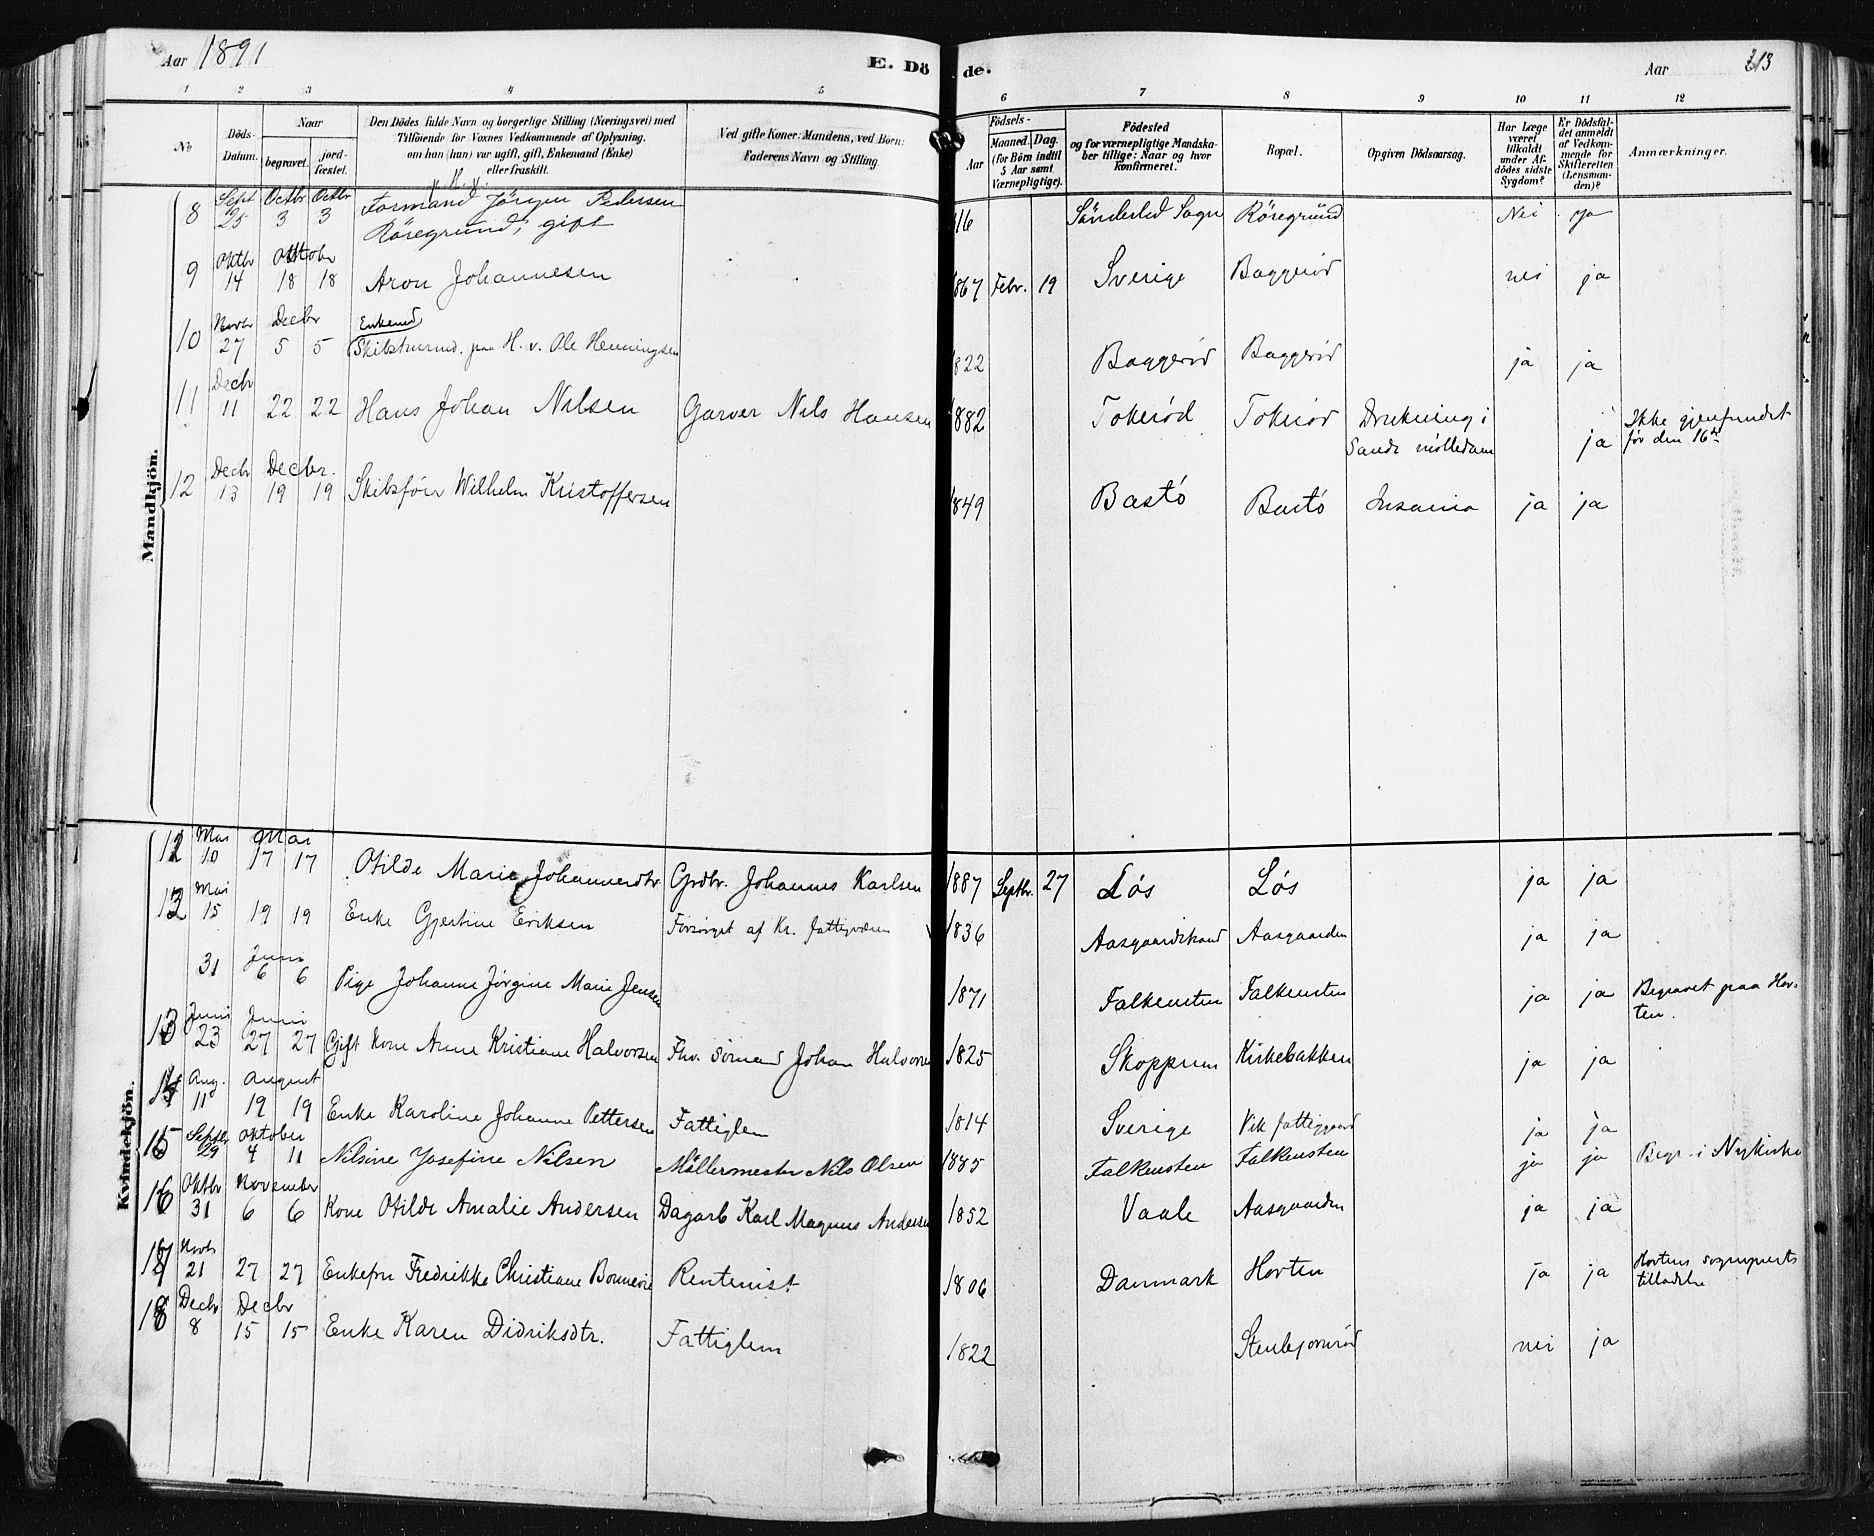 Aar 1891 E. Dö de. Aar 213
1 2 3 4 5 6 7 8 9 10 11 12
No
Döds-Datum.
Naar
begravet. jord-fæstet.
Den Dödes fulde Navn og borgerlige Stilling (Næringsvei) med
Tilföiende for Voxnes Vedkommende af Oplysning,
om han (hun) var ugift, gift, Enkemand (Enke)
eller fraskilt.
Ved gifte Koner: Mandens, ved Börn:
Faderens Navn og Stilling.
Födsels-
Aar
Maaned. Dag.
(for Börn indtil
5 Aar samt
Værnepligtige).
Födested
og for værnepligtige Mandska-
ber tillige: Naar og hvor
konfirmeret.
Bopæl.
Opgiven Dödsaarsag.
Har Læge
været
tilkaldt
under Af-
dödes sidste
Sygdom?
Er Dödsfal-
det anmeldt
af Vedkom-
mende for
Skifteretten
(Lensman-
den)?
Anmærkninger.
Mandkjön.
8 Sept 25 Octbr 3 Octbr 3 Formand Jörgen Pedersen
Röregrund, gift 16 Sönderled Sogn Röregrund Nei Ja
9 Oktbr 14 Oktober 18 18 Aron Johannesen 867 Febr. 19 Sverige Baggeröd nei ja
10 Novbr 27 Decbr 5 5 Enkemd
Skibstmrmd. paa H. v. Ole Henningsen 822 Baggeröd Baggeröd ja ja
11 Decbr 11 22 22 Hans Johan Nilsen Garver Nils Hansen 882 Tokeröd Tokeröd Drukning i
Sande mölledam ja Ikke gjenfundet
før den 16de
12 Decbr 13 Decbr. 19 19 Skibsförer Wilhelm Kristoffersen 1849 Bastö Bastö Insania ja ja
Kvindekjön.
12 Mai 10 Mai 17 17 Otilde Marie Johannesdtr. Grdbr. Johannes Karlsen 1887 Septbr. 27 Lös Lös ja ja
13 Mai 15 19 19 Enke Gjertine Eriksen Forsörget af Kr. fattigvæsen 1836 Aasgaardstrand Aasgaarden ja ja
31 Juni 6 6 Pige Johanne Jörgine Marie Jensen 1871 Falkensten Falkensten ja ja Begravet paa Hor-
ten.
13 Juni 23 Juni 27 27 Gift Kone Anne Kristiane Halvorsen Fhv. Sömand Johan Halvorsen 1825 Skoppum Kirkebakken ja ja
14 Aug. 11 August 19 19 Enke Karoline Johanne Pettersen Fattiglem 1814 Sverige Vik fattiggaard ja ja
15 Septbr 29 Oktober 4 11 Nilsine Josefine Nilsen Möllermester Nils Olsen 1885 Falkensten Falkensten ja ja Begr. i Nykirke
16 Oktbr 31 November 6 6 Kone Otilde Amalie Andersen Dagarb Karl Magnus Andersen 1852 Vaale Aasgaarden ja ja
17 Novbr 21 27 27 Enkefru Fredrikke Christiane Bonnevie Rentenist 1806 Danmark Horten ja ja Hortens sogneprests
tilladelse
18 Decbr 8 Decbr 15 15 Enke Karen Didriksdtr. Fattiglem 1822 Stenbjornröd nei ja